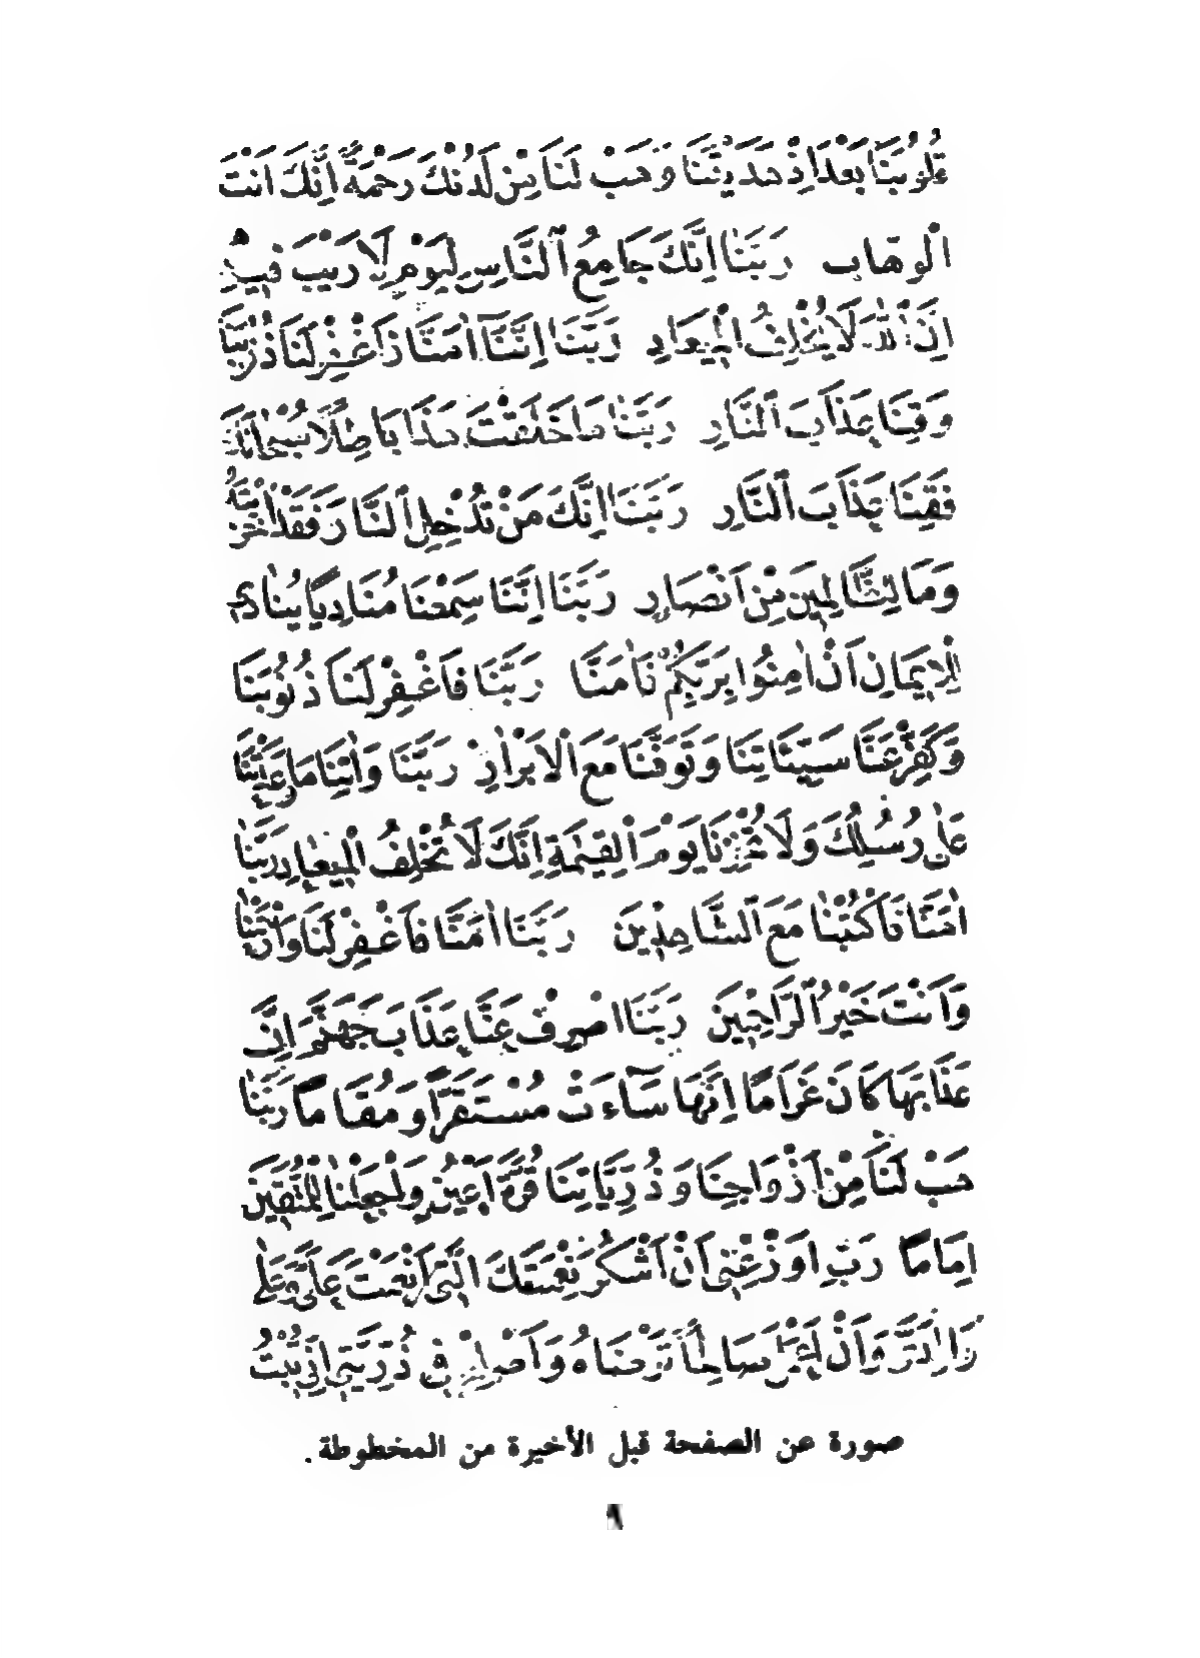 قُلُوبَنَا بَعْدَ اِذْ هَدَيْتَنَا وَهَبْ لَنَا مِنْ لَدُنْكَ رَحْمَةً اِنَّكَ اَنْتَ
الْوَهَّاب رَبَّنَا اِنَّكَ جَامِعُ النَّاسِ لِيَوْمٍ لَا رَيْبَ فِيهِ
اِنَّ اللّٰهَ لَا يُخْلِفُ الْمِيعَادِ رَبَّنَا اِنَّنَا اٰمَنَّا فَاغْفِرْ لَنَا ذُنُوبَنَا
وَقِنَا عَذَابَ النَّارِ رَبَّنَا مَا خَلَقْتَ هٰذَا بَاطِلًا سُبْحَانَكَ
فَقِنَا عَذَابَ النَّارِ رَبَّنَا اِنَّكَ مَنْ تُدْخِلِ النَّارَ فَقَدْ اَخْزَيْتَهُ
وَمَا لِلظَّالِمِينَ مِنْ اَنْصَارٍ رَبَّنَا اِنَّنَا سَمِعْنَا مُنَادِيًا يُنَادِى
لِلْاِيمَانِ اَنْ اٰمِنُوا بِرَبِّكُمْ فَاٰمَنَّا رَبَّنَا فَاغْفِرْ لَنَا ذُنُوبَنَا
وَكَفِّرْ عَنَّا سَيِّئَاتِنَا وَتَوَفَّنَا مَعَ الْاَبْرَارِ رَبَّنَا وَاٰتِنَا مَا وَعَدْتَنَا
عَلٰى رُسُلِكَ وَلَا تُخْزِنَا يَوْمَ الْقِيٰمَةِ اِنَّكَ لَا تُخْلِفُ الْمِيعَادِ رَبَّنَا
اٰمَنَّا فَاكْتُبْنَا مَعَ الشَّاهِدِينَ رَبَّنَا اٰمَنَّا فَاغْفِرْ لَنَا وَارْحَمْنَا
وَاَنْتَ خَيْرُ الرَّاحِمِينَ رَبَّنَا اصْرِفْ عَنَّا عَذَابَ جَهَنَّمَ اِنَّ
عَذَابَهَا كَانَ غَرَامًا اِنَّهَا سَاءَتْ مُسْتَقَرًّا وَمُقَامًا رَبَّنَا
هَبْ لَنَا مِنْ اَزْوَاجِنَا وَذُرِّيَّاتِنَا قُرَّةَ اَعْيُنٍ وَاجْعَلْنَا لِلْمُتَّقِينَ
اِمَامًا رَبِّ اَوْزِعْنِى اَنْ اَشْكُرَ نِعْمَتَكَ الَّتِى اَنْعَمْتَ عَلَىَّ وَعَلٰى
وَالِدَىَّ وَاَنْ اَعْمَلَ صَالِحًا تَرْضَاهُ وَاَصْلِحْ لِى فِى ذُرِّيَّتِى اِنِّى تُبْتُ
صورة عن الصفحة قبل الأخيرة من المخطوطة .
٩